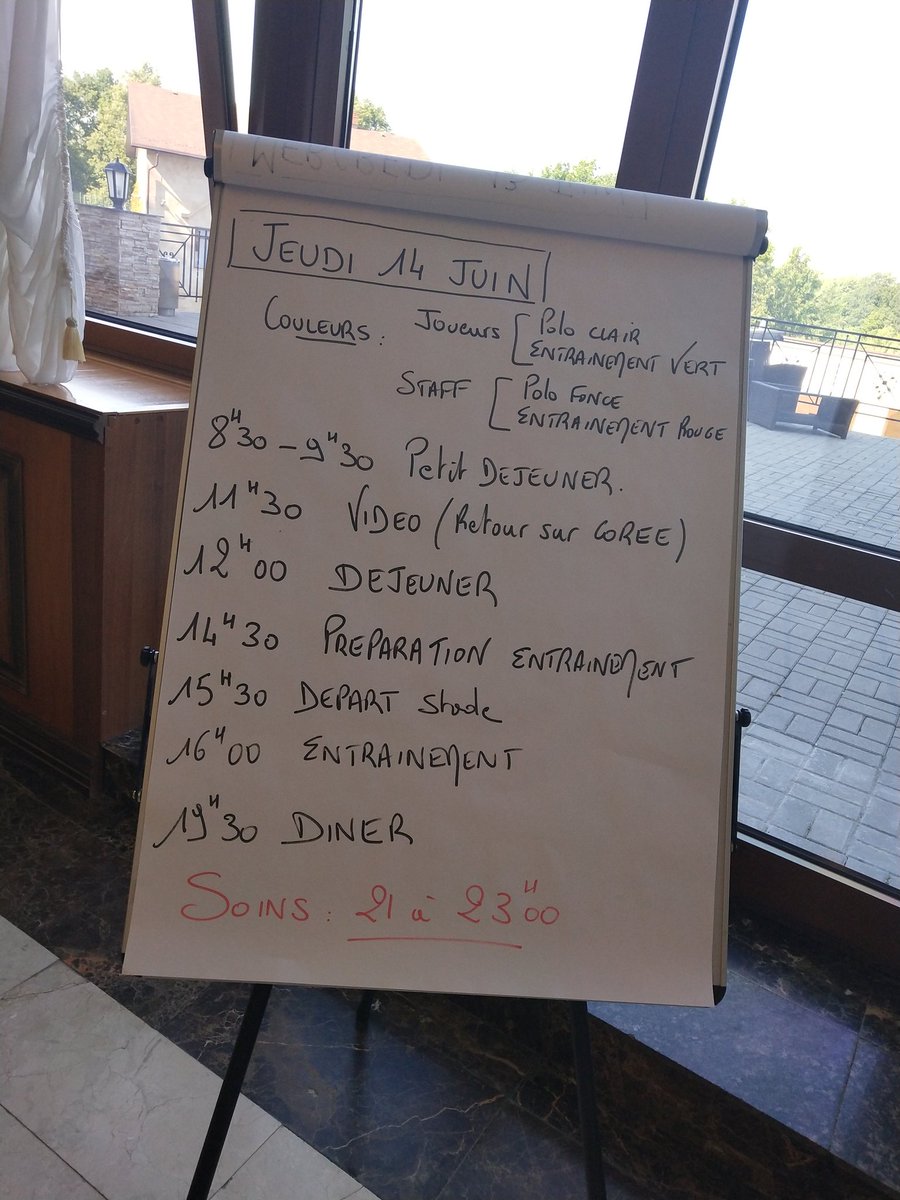 MERCREDI 13
JEUDI 14 JUIN
COULEURS : JOUEURS [ POLO CLAIR
ENTRAINEMENT VERT
STAFF [ POLO FONCE
ENTRAINEMENT ROUGE
8H30 - 9H30 Petit DEJEUNER.
11H30 VIDEO (Retour sur COREE)
12H00 DEJEUNER
14H30 PREPARATION ENTRAINEMENT
15H30 DEPART Stade
16H00 ENTRAINEMENT
19H30 DINER
SOINS : 21 à 23H00